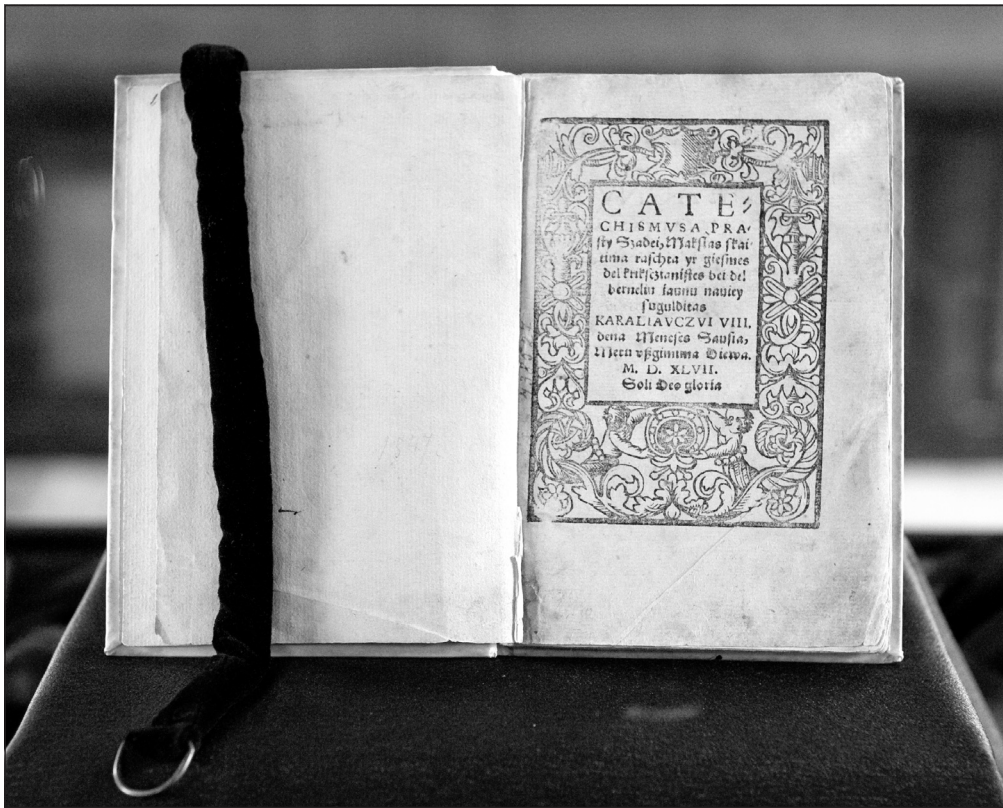 1547
CATE⸗
CHISMVSA PRA⸗
sty Szadei, Makslas skai⸗
tima raschta yr giesmes
del kriksczianistes bei del
berneliu iaunu nauiey
sugulditas
KARALIAVCZVI VIII.
dena Meneses Sausia,
Metu vßgimima Diewa.
M. D. XLVII.
Soli Deo gloria